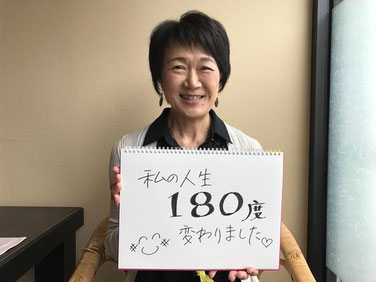 私の人生
180度
変わりました♡